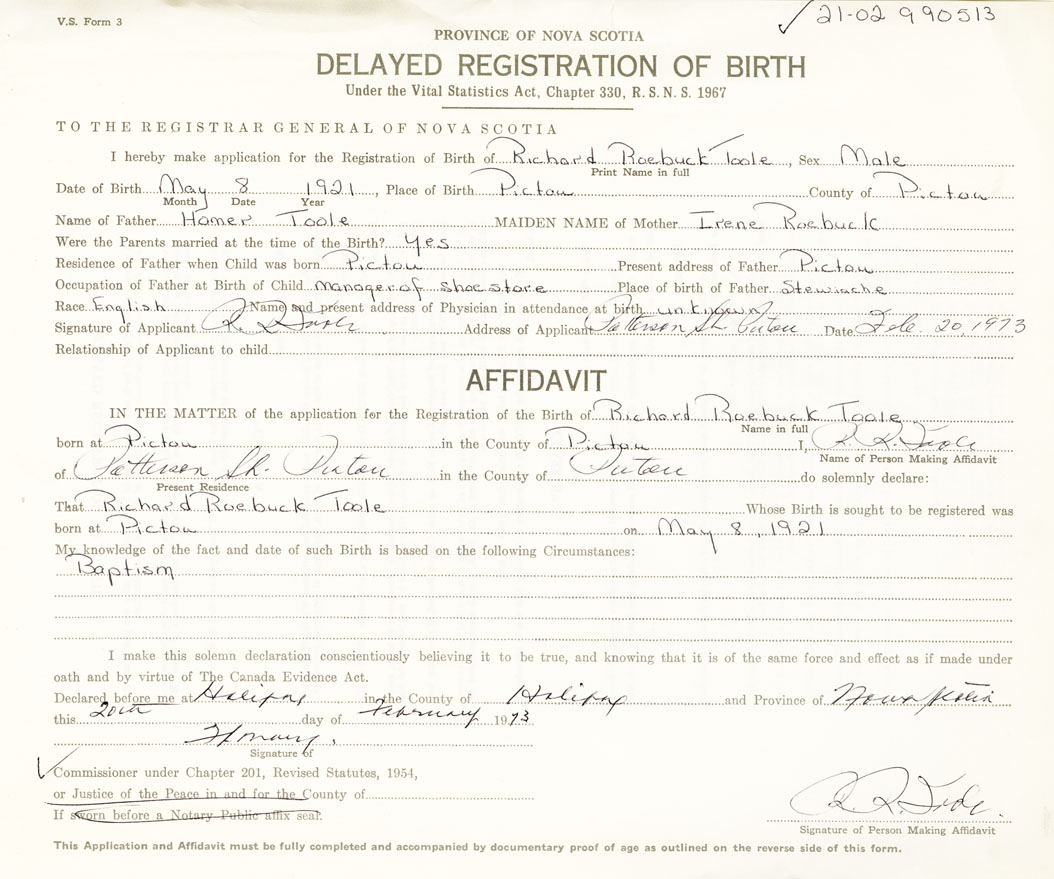 V.S. Form 3
21-02 990513
PROVINCE OF NOVA SCOTIA
DELAYED REGISTRATION OF BIRTH
Under the Vital Statistics Act, Chapter 330, R. S. N. S. 1967
TO THE REGISTRAR GENERAL OF NOVA SCOTIA
I hereby make application for the Registration of Birth of Richard Roebuck Toole, Sex Male
Print Name in full
Date of Birth May 8 1921, Place of Birth Pictou County of Pictou
Month Date Year
Name of Father Homer Toole MAIDEN NAME of Mother Irene Roebuck
Were the Parents married at the time of the Birth? Yes
Residence of Father when Child was born Pictou Present address of Father Pictou
Occupation of Father at Birth of Child Manager of Shoe store Place of birth of Father Stewiacke
Race English Name and present address of Physician in attendance at birth unknown
Signature of Applicant R R Toole Address of Applicant Patterson St. Pictou Date Feb. 20, 1973
Relationship of Applicant to child
AFFIDAVIT
IN THE MATTER of the application for the Registration of the Birth of Richard Roebuck Toole
Name in full
born at Pictou in the County of Pictou I, R. R. Toole
Name of Person Making Affidavit
of Patterson St. Pictou in the County of Pictou do solemnly declare:
Present Residence
That Richard Roebuck Toole Whose Birth is sought to be registered was
born at Pictou on May 8, 1921
My knowledge of the fact and date of such Birth is based on the following Circumstances:
Baptism
I make this solemn declaration conscientiously believing it to be true, and knowing that it is of the same force and effect as if made under
oath and by virtue of The Canada Evidence Act.
Declared before me at Halifax in the County of Halifax and Province of Nova Scotia
this 20th day of February 1973
Signature of
Commissioner under Chapter 201, Revised Statutes, 1954,
or Justice of the Peace in and for the County of
If sworn before a Notary Public affix seal.
R. R. Toole.
Signature of Person Making Affidavit
This Application and Affidavit must be fully completed and accompanied by documentary proof of age as outlined on the reverse side of this form.